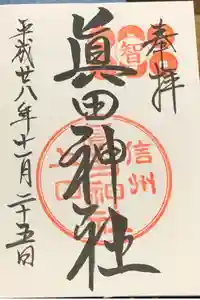 奉拝
智
眞田神社
信州
上田
平成廿八年十一月二十五日